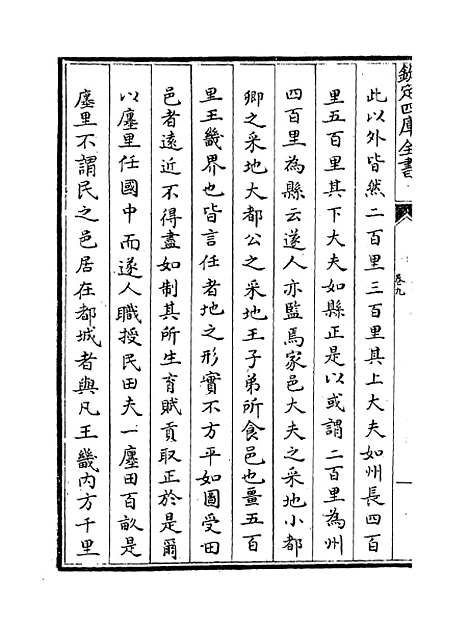 欽定四庫全書
卷九
此以外皆然二百里三百里其上大夫如州長四百
里五百里其下大夫如縣正是以或謂二百里為州
四百里為縣云遂人亦監焉家邑大夫之采地小都
卿之采地大都公之采地王子弟所食邑也畺五百
里王畿界也皆言任者地之形實不方平如圖受田
邑者遠近不得盡如制其所生育賦貢取正於是爾
以廛里任國中而遂人職授民田夫一廛田百畝是
廛里不謂民之邑居在都城者與凡王畿內方千里